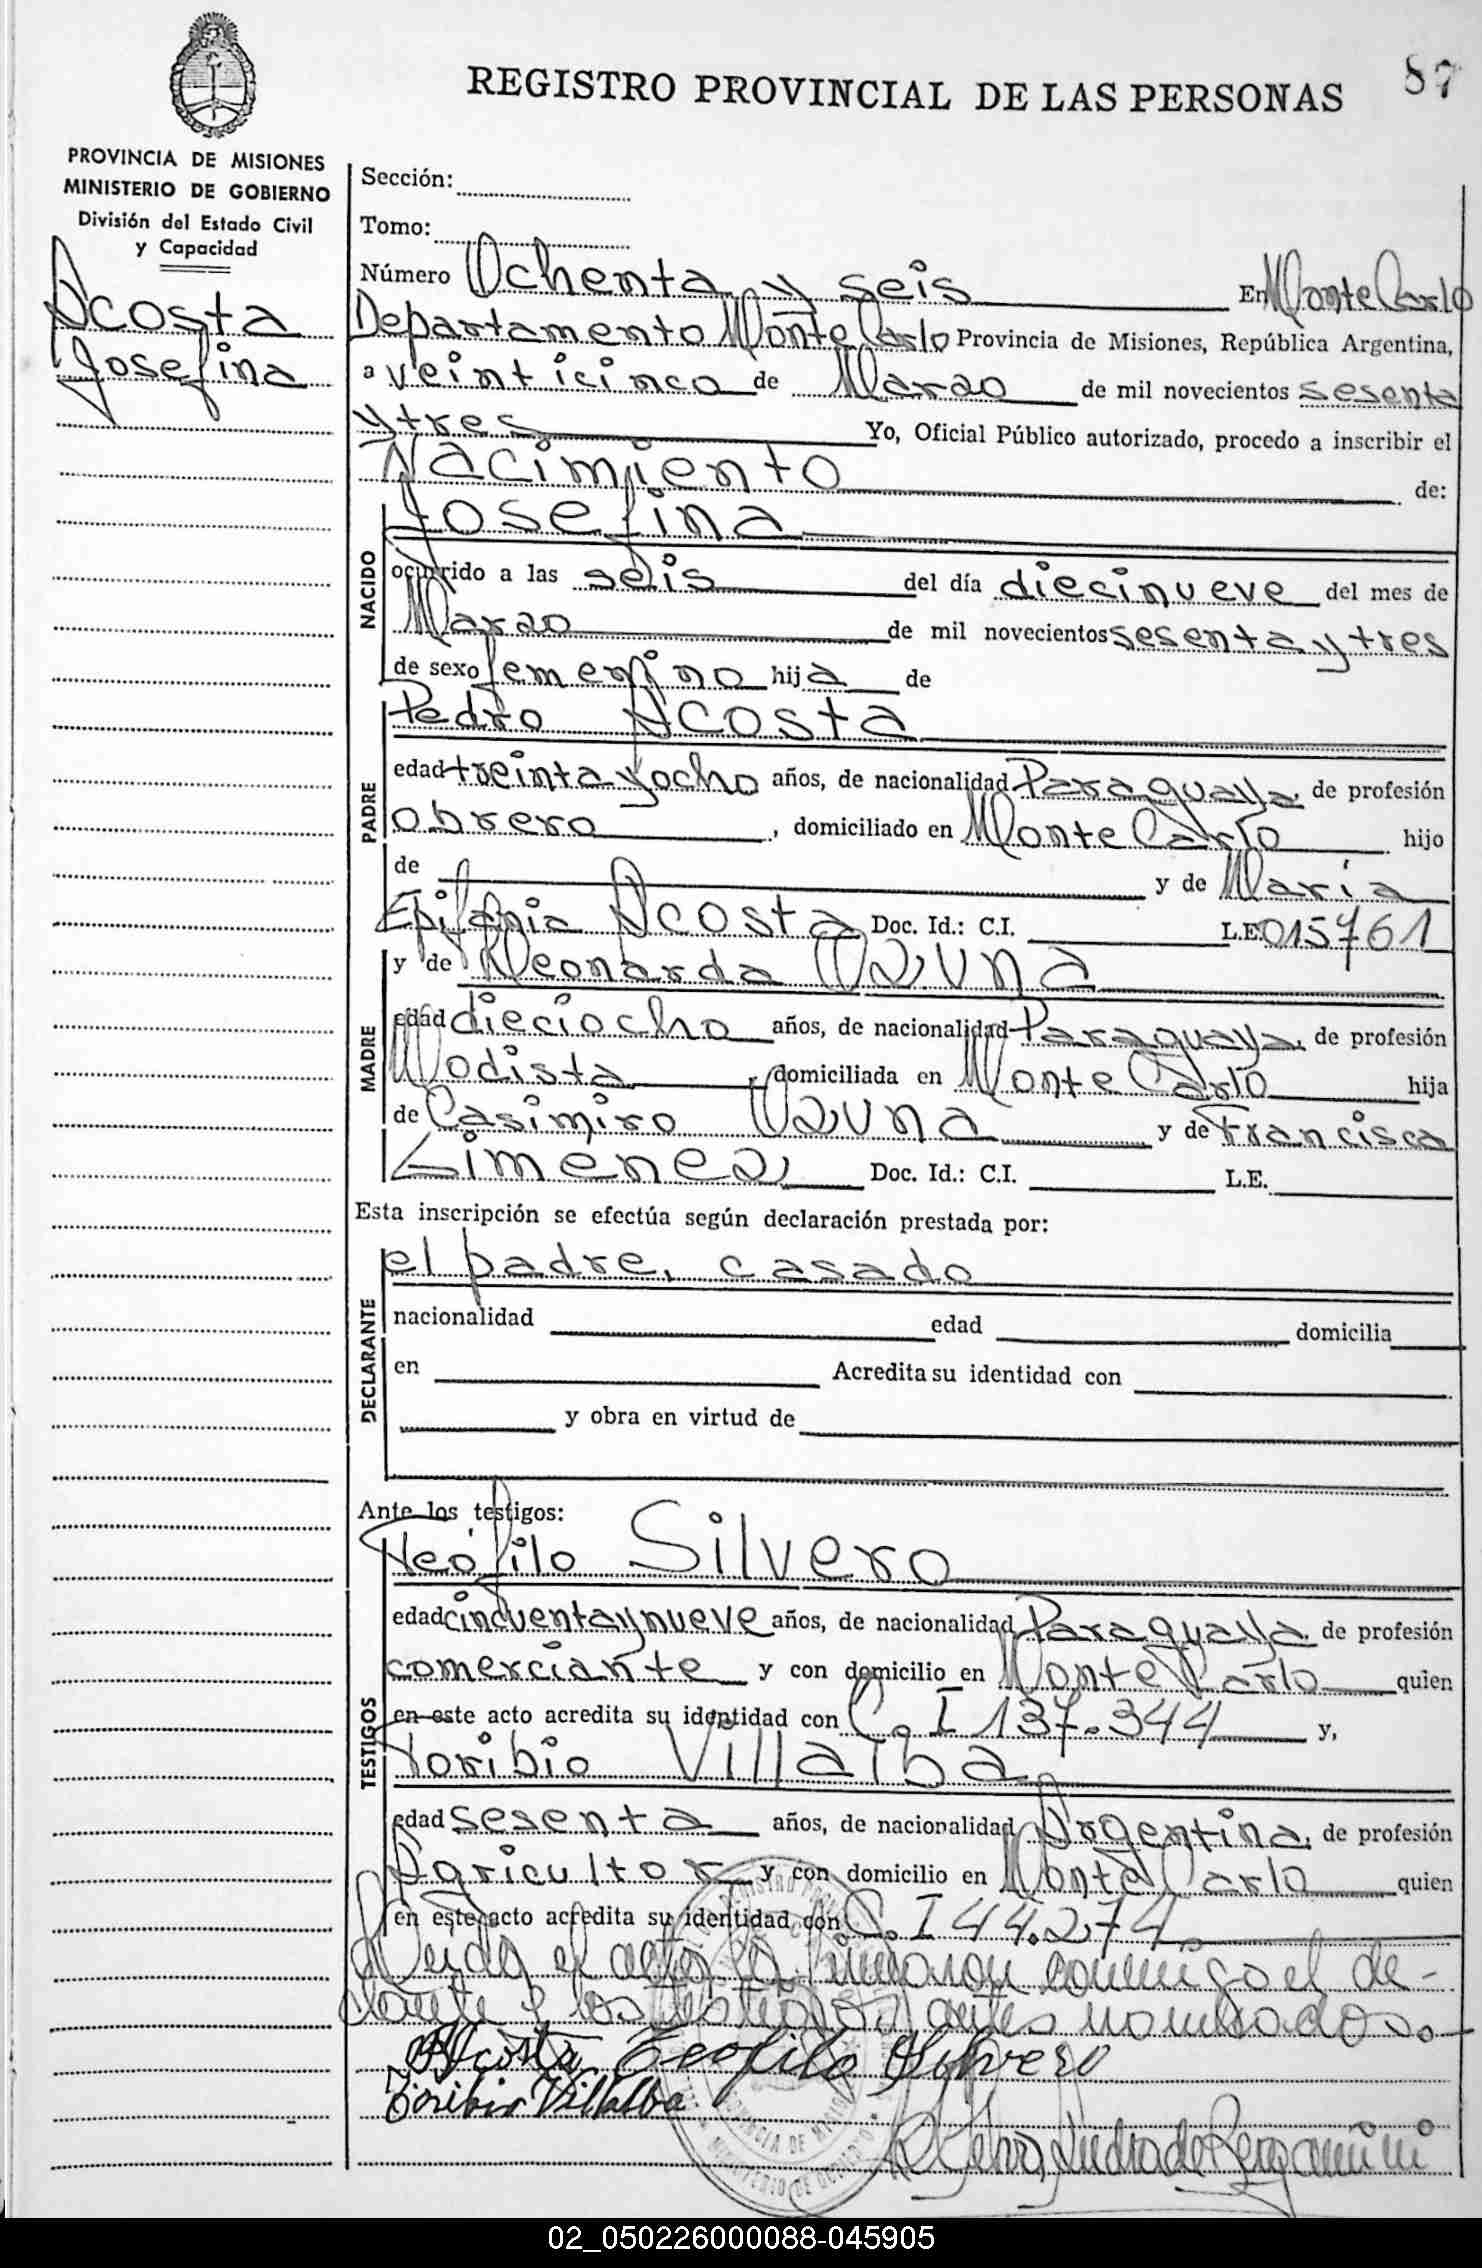 REGISTRO PROVINCIAL DE LAS PERSONAS 87
PROVINCIA DE MISIONES
MINISTERIO DE GOBIERNO
División del Estado Civil
y Capacidad
Acosta
Josefina
Sección:
Tomo:
Número Ochenta y seis En Monte Carlo
Departamento Monte Carlo Provincia de Misiones, República Argentina,
a veinticinco de Marzo de mil novecientos sesenta
y tres Yo, Oficial Público autorizado, procedo a inscribir el
Nacimiento de:
NACIDO
Josefina
ocurrido a las seis del día diecinueve del mes de
Marzo de mil novecientos sesenta y tres
de sexo femenino hija de
PADRE
Pedro Acosta
edad treinta y ocho años, de nacionalidad Paraguaya, de profesión
obrero, domiciliado en Monte Carlo hijo
de y de María
Epifania Acosta Doc. Id.: C.I. L.E. 015761
MADRE
y de Leonarda Ozuna
edad dieciocho años, de nacionalidad Paraguaya, de profesión
Modista, domiciliada en Monte Carlo hija
de Casimiro Ozuna y de Francisca
Gimenez Doc. Id.: C.I. L.E.
Esta inscripción se efectúa según declaración prestada por:
DECLARANTE
el padre, casado
nacionalidad edad domicilia
en Acredita su identidad con
y obra en virtud de
Ante los testigos:
TESTIGOS
Teófilo Silvero
edad cincuenta y nueve años, de nacionalidad Paraguaya de profesión
comerciante y con domicilio en Monte Carlo quien
en este acto acredita su identidad con C. I 137.344 y,
Toribio Villalba
edad sesenta años, de nacionalidad Argentina, de profesión
Agricultor y con domicilio en Monte Carlo quien
en este acto acredita su identidad con C. I 44.274.
Leida el acta, la firmaron conmigo el de-
clarante y los testigos antes nombrados.-
Acosta Teofilo Silvero
Toribio Villalba
de Bergamini
02_050226000088-045905